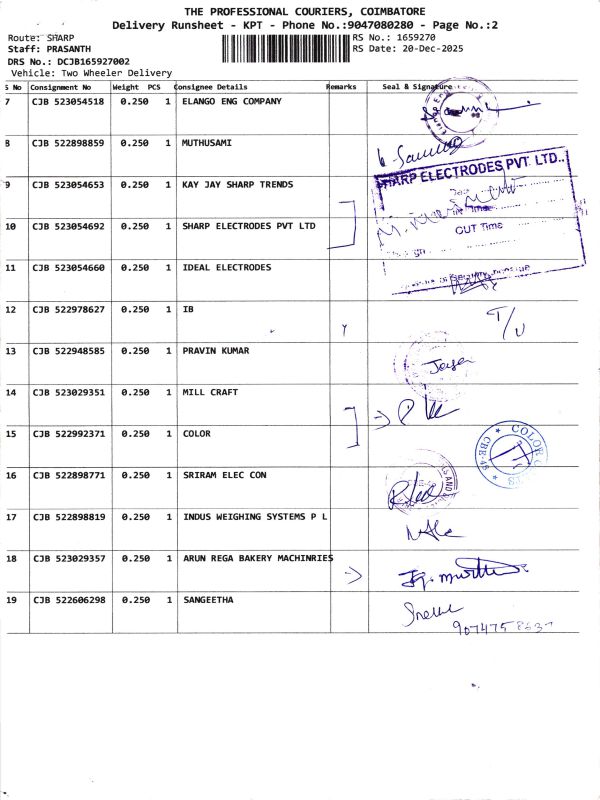 THE PROFESSIONAL COURIERS, COIMBATORE
Delivery Runsheet - KPT - Phone No.:9047080280 - Page No.:2
Route: SHARP RS No.: 1659270
Staff: PRASANTH RS Date: 20-Dec-2025
DRS No.: DCJB165927002
Vehicle: Two Wheeler Delivery
S No Consignment No Weight PCS Consignee Details Remarks Seal & Signature
7 CJB 523054518 0.250 1 ELANGO ENG COMPANY
8 CJB 522898859 0.250 1 MUTHUSAMI
SHARP ELECTRODES PVT. LTD..
9 CJB 523054653 0.250 1 KAY JAY SHARP TRENDS
10 CJB 523054692 0.250 1 SHARP ELECTRODES PVT LTD
OUT Time
11 CJB 523054660 0.250 1 IDEAL ELECTRODES
12 CJB 522978627 0.250 1 IB
13 CJB 522948585 0.250 1 PRAVIN KUMAR
14 CJB 523029351 0.250 1 MILL CRAFT
15 CJB 522992371 0.250 1 COLOR
COLOR
16 CJB 522898771 0.250 1 SRIRAM ELEC CON
17 CJB 522898819 0.250 1 INDUS WEIGHING SYSTEMS P L
18 CJB 523029357 0.250 1 ARUN REGA BAKERY MACHINRIES
19 CJB 522606298 0.250 1 SANGEETHA